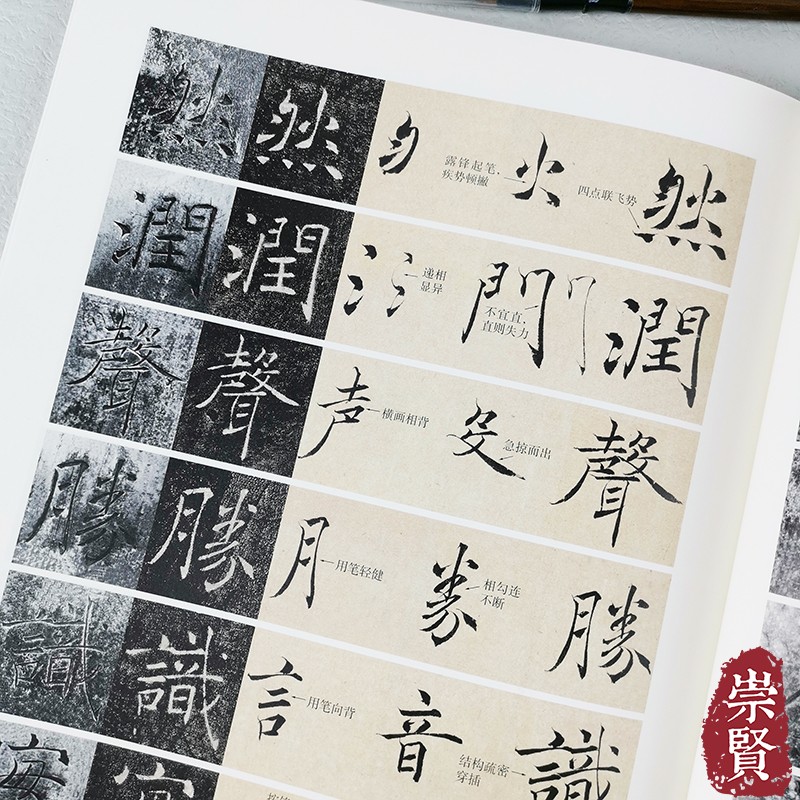 然
然
露锋起笔,
疾势顿撇
火
四点联飞势
然
潤
潤
氵
递相
显异
門
不宜直,
直则失力
潤
聲
聲
声
横画相背
殳
急掠而出
聲
勝
勝
月
用笔轻健
相勾连
不断
勝
識
識
言
用笔向背
音
结构疏密
穿插
識
崇賢